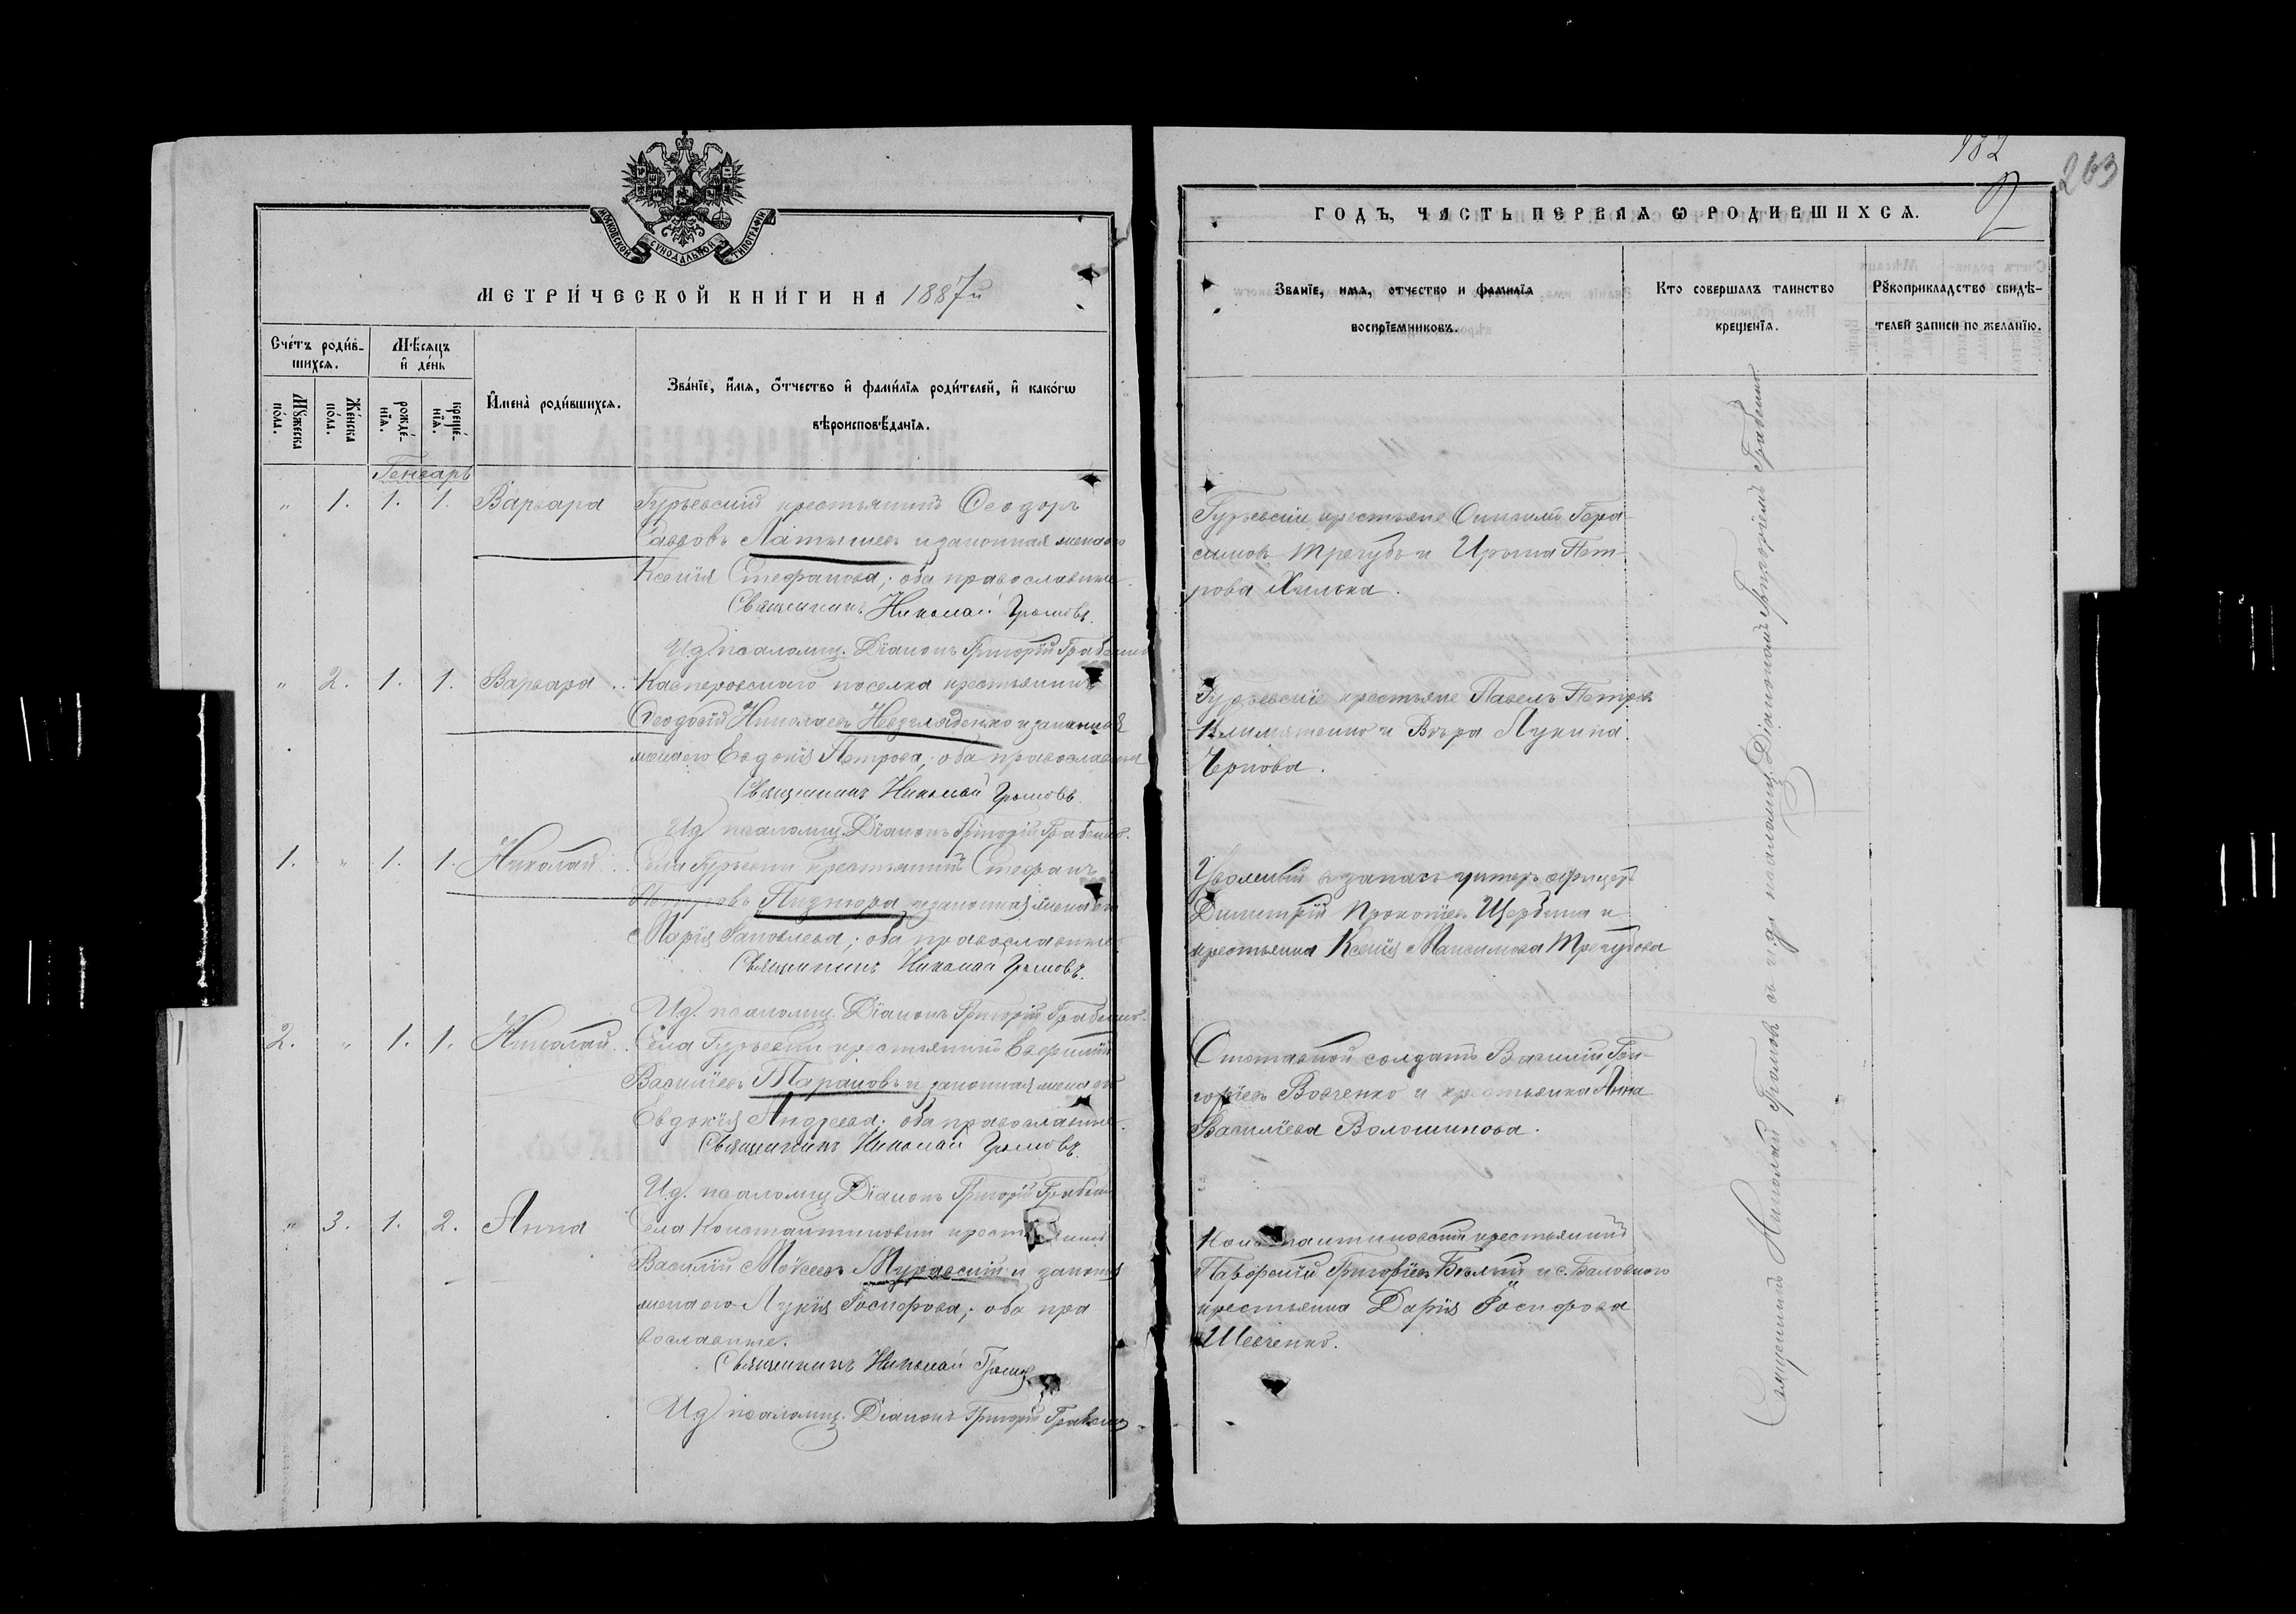 МОСКОВСКОЙ СѴНОДАЛЬНОЙ ТИПОГРАФІИ
МЕТРИ́ЧЕСКОЙ КНИ́ГИ НА 1887й
Сче́тъ роди́в-
шихся.
Мѣ́сяцъ
и҆ де́нь
Му́жеска
по́ла.
Же́нска
по́ла.
рожде́-
нїя.
креще́-
нїя.
И҆мена̀ роди́вшихся.
Зва́нїе, и҆́мя, ѻ҆́тчество и҆ фами́лїя роди́телей, и҆ како́гѡ
вѣроисповѣ́данїя.
Генварь
" 1. 1. 1. Варвара
Гурьевскій крестьянинъ Ѳеодоръ
Саввовъ Латышевъ и законная жена его
Ксенія Стефанова; оба православные.
Священникъ Николай Громовъ.
И.д. псаломщ. Діаконъ Григорій
" 2. 1. 1. Варвара
Касперовскаго поселка крестьянинъ
Ѳеодосій Николаевъ Невгляденко и законная
жена его Евдокія Петрова; оба православные
Священникъ Николай Громовъ.
И.д. псаломщ. Діаконъ Григорій
1. " 1. 1. Николай
Села Гурьевки крестьянинъ Стефанъ
Пидтора и законная жена его
Марія Іаковлева; оба православные.
Священникъ Николай Громовъ.
И.д. псаломщ. Діаконъ Григорій
2. " 1. 1. Николай
Села Гурьевки крестьянинъ
Василіевъ Тарановъ и законная жена его
Евдокія Андреева; оба православные.
Священникъ Николай Громовъ.
И.д. псаломщ. Діаконъ Григорій
" 3. 1. 2. Анна
Села Константиновки
Василій Моѵсеевъ Муравскій и законная
жена его Лукія Іосифова; оба пра
вославные.
Священникъ Николай Громовъ
И.д. псаломщ. Діаконъ Григорій
182
263
ГОДЪ, ЧАСТЬ ПЕРВАЯ Ѡ РОДИВШИХСЯ.
Званїе, имя, отчество и фамилїя
воспрїемниковъ.
Кто совершалъ таинство
крещенїя.
Рꙋкоприкладство свидѣ-
телей записи по желанїю.
Гурьевскіе крестьяне Гера-
симовъ Трегубъ и Ирина Пет-
рова
Гурьевскіе крестьяне Павелъ Петровъ
Климатенко и Вѣра Лукина
Чернова.
Уволенный въ запасъ унтеръ офицеръ
Димитрій Прокопіевъ Щербина и
крестьянка Ксенія Максимова Трегубова
Отставной солдатъ Василій Гри-
горіевъ Вовченко и крестьянка Анна
Василіева Волошинова.
Константиновскій крестьянинъ
Григоріевъ Бѣлый и с. Баловного
крестьянка Дарія Іосифова
Шевченко.
Священникъ Николай Громовъ и и.д. псаломщ. Діакономъ Григоріемъ